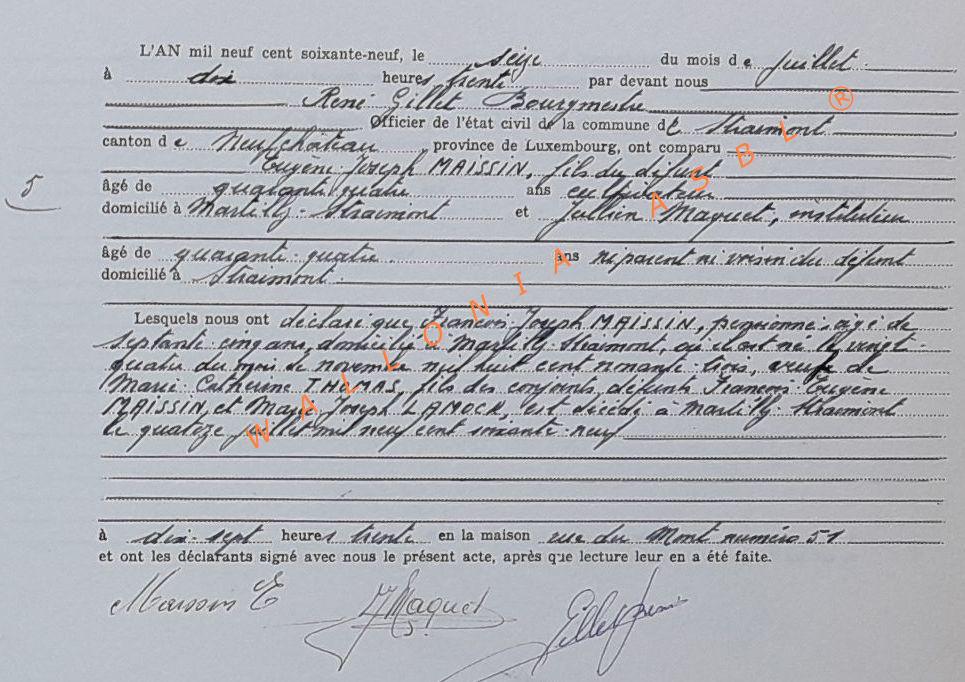 L'AN mil neuf cent soixante-neuf, le seize du mois de juillet
à dix heures trente par devant nous
René Gillet Bourgmestre
Officier de l'état civil de la commune de Straimont
canton de Neufchâteau, province de Luxembourg, ont comparu
Eugène Joseph MAISSIN, fils du défunt
âgé de quarante quatre ans cultivateur
5
domicilié à Martilly-Straimont et Jullien Maquet, instituteur
âgé de quarante-quatre ans ni parent ni voisin du défunt
domicilié à Straimont
Lesquels nous ont déclaré que François Joseph MAISSIN, pensionné, âgé de
septante cinq ans, domicilié à Martilly-Straimont, où il est né le vingt-
quatre du mois de novembre mil huit cent nonante-trois, veuf de
Marie-Catherine THOMAS, fils des conjoints défunts François Eugène
MAISSIN, et Marie-Joseph LAMOCK, est décédé à Martilly-Straimont
le quatoze juillet mil neuf cent soixante-neuf
à dix-sept heures trente en la maison rue du Mont numéro 51
et ont les déclarants signé avec nous le présent acte, après que lecture leur en a été faite.
Maissin E J Maquet Gillet
WALLONIA ASBL ®